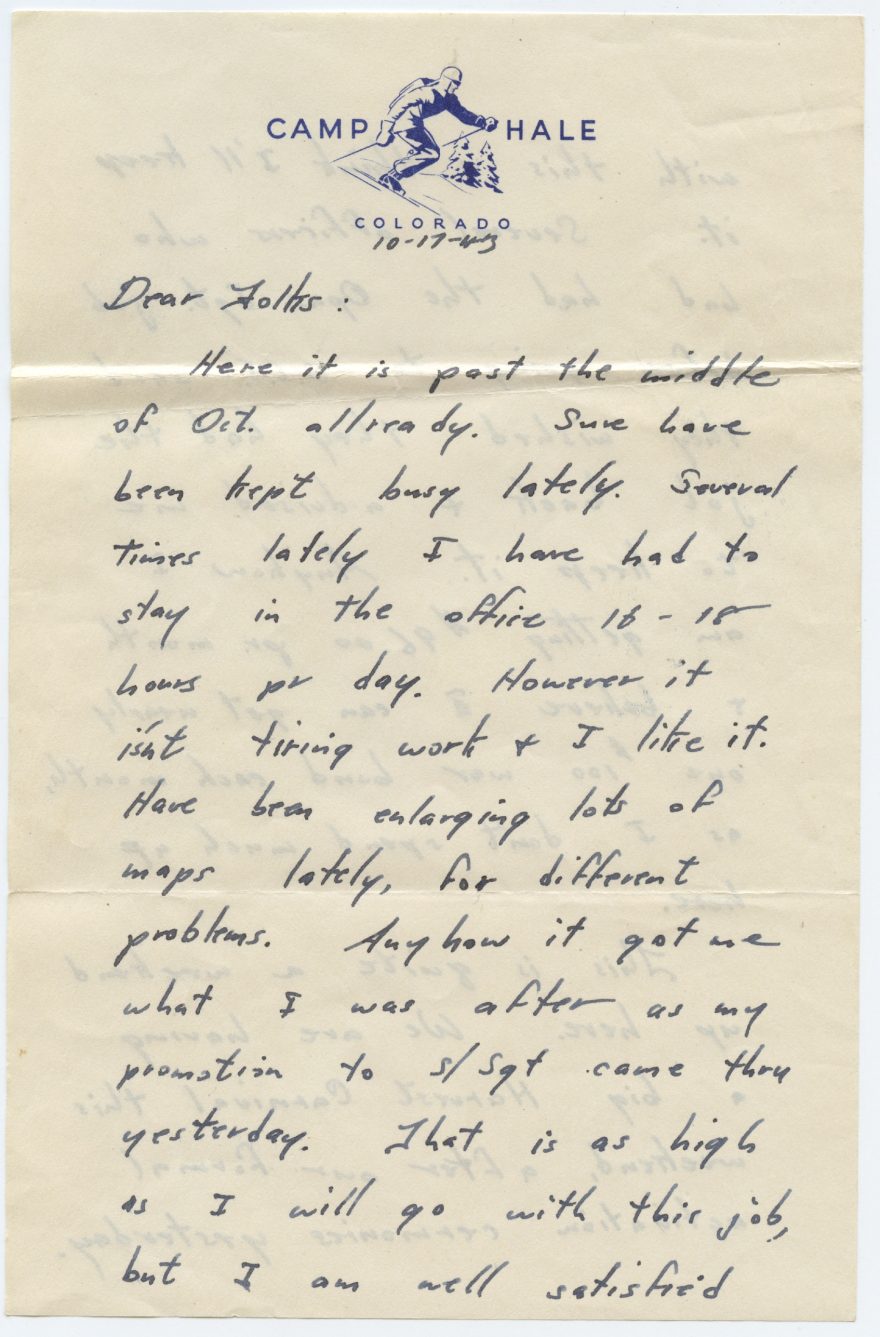 CAMP HALE
COLORADO
10-17-43
Dear Folks:
Here it is past the middle
of Oct. allready. Sure have
been kept busy lately. Several
times lately I have had to
stay in the office 16 - 18
hours pr day. However it
isn't tiring work & I like it.
Have been enlarging lots of
maps lately, for different
problems. Anyhow it got me
what I was after as my
promotion to S/Sgt came thru
yesterday. That is as high
as I will go with this job,
but I am well satisfied